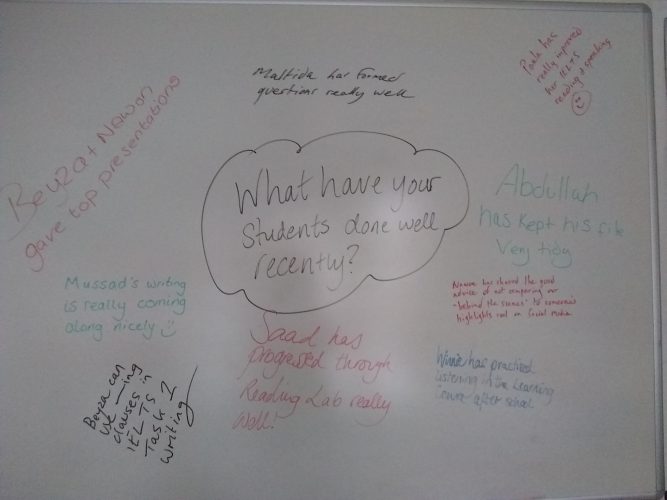 Beyza + Nawon
gave top presentations
Maltida has formed
questions really well
Paula has
really improved
her IELTS
reading + speaking
What have your
Students done well
recently?
Abdullah
has kept his file
very tidy
Mussad's writing
is really coming
along nicely
has shared the good
advice of not comparing our
'behind the scenes' to someone's
highlights reel on social media
Saad has
progressed through
Reading Lab really
well!
Winnie has practised
listening in the Learning
Centre after school
Beyza can
use —ing
clauses in
IELTS
Task 1
writing